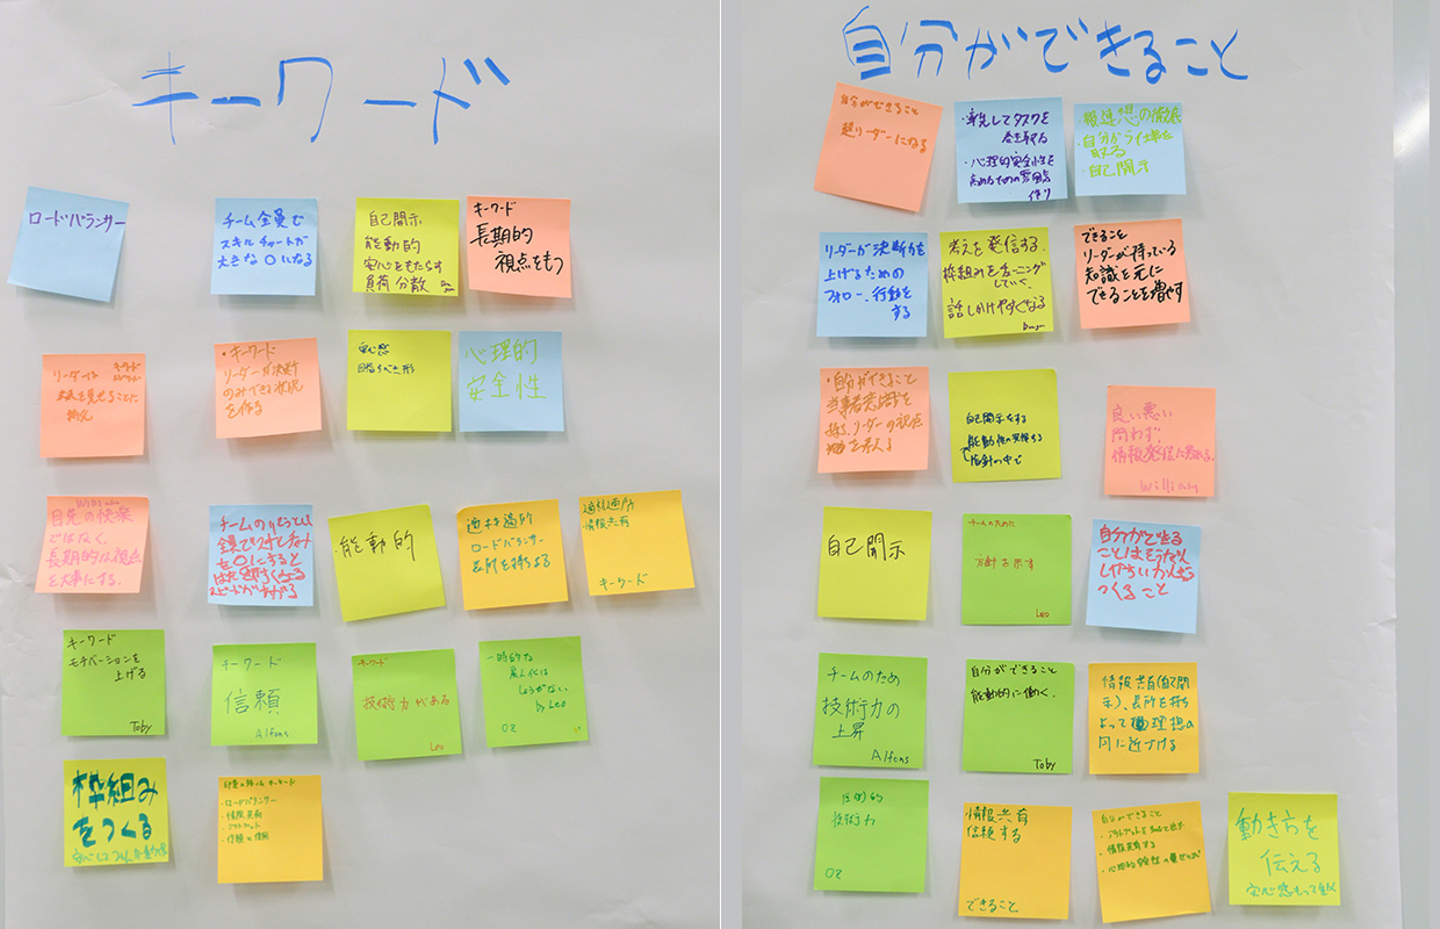 キーワード
ロードバランサー
チーム全員で
スキルチャートが
大きな○になる
自己開示
能動的
安心をもたらす
負荷分散
キーワード
長期的
視点をもつ
リーダーは
キーワード
・キーワード
リーダーが決断
のみできる状況
を作る
安心感
目指すべき形
心理的
安全性
William
目先の快楽
ではなく、
長期的な視点
を大事にする。
チームの
全員で
を○にすると
スピードが上がる
・能動的
適材適所
ロードバランサー
長所を持ちよる
適材適所
・情報共有
キーワード
キーワード
モチベーションを
上げる
Toby
キーワード
信頼
Alfons
キーワード
技術力がある
Leo
一時的な
属人化は
しょうがない
by Leo
OZ
枠組み
をつくる
安心して
キーワード
・ロードバランサー
・情報共有
・アウトプット
・信頼と信用
自分ができること
自分ができること
超リーダーになる
・率先してタスクを
巻き取る
・心理的安全性を
高めるための雰囲気
作り
・報連想の徹底
・自分から仕事を
取る
・自己開示
リーダーが決断力を
上げるための
フォロー、行動を
する
考えを発信する。
枠組みをチューニング
していく、
話しかけやすくなる
できること
リーダーが持っている
知識を元に
できることを増やす
・自分ができること
当事者意識を
持ち、リーダーの視点
を考える
自己開示をする
能動性の発揮する
指針の中で
良い悪い
問わず、
情報発信に努める。
William
自己開示
チームのために
方針を示す
Leo
自分ができる
ことはもうたくさん
つくること
チームのため
技術力の
上昇
Alfons
自分ができること
能動的に働く。
Toby
情報共有(自己開
示)、長所を持ち
よって理想の
円に近づける
圧倒的
技術力
OZ
・情報共有
信頼する
できること
自分ができること
・情報共有する
動き方を
伝える
安心感もって